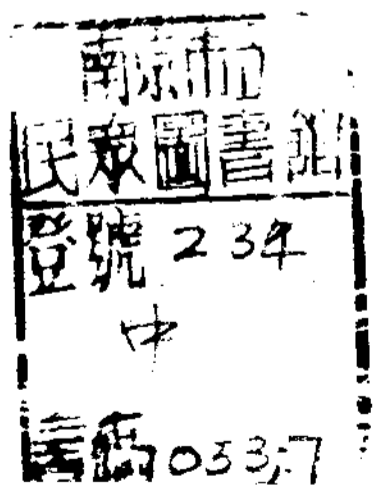 南京市立
民眾圖書館
登號 234
中
書碼 053;7